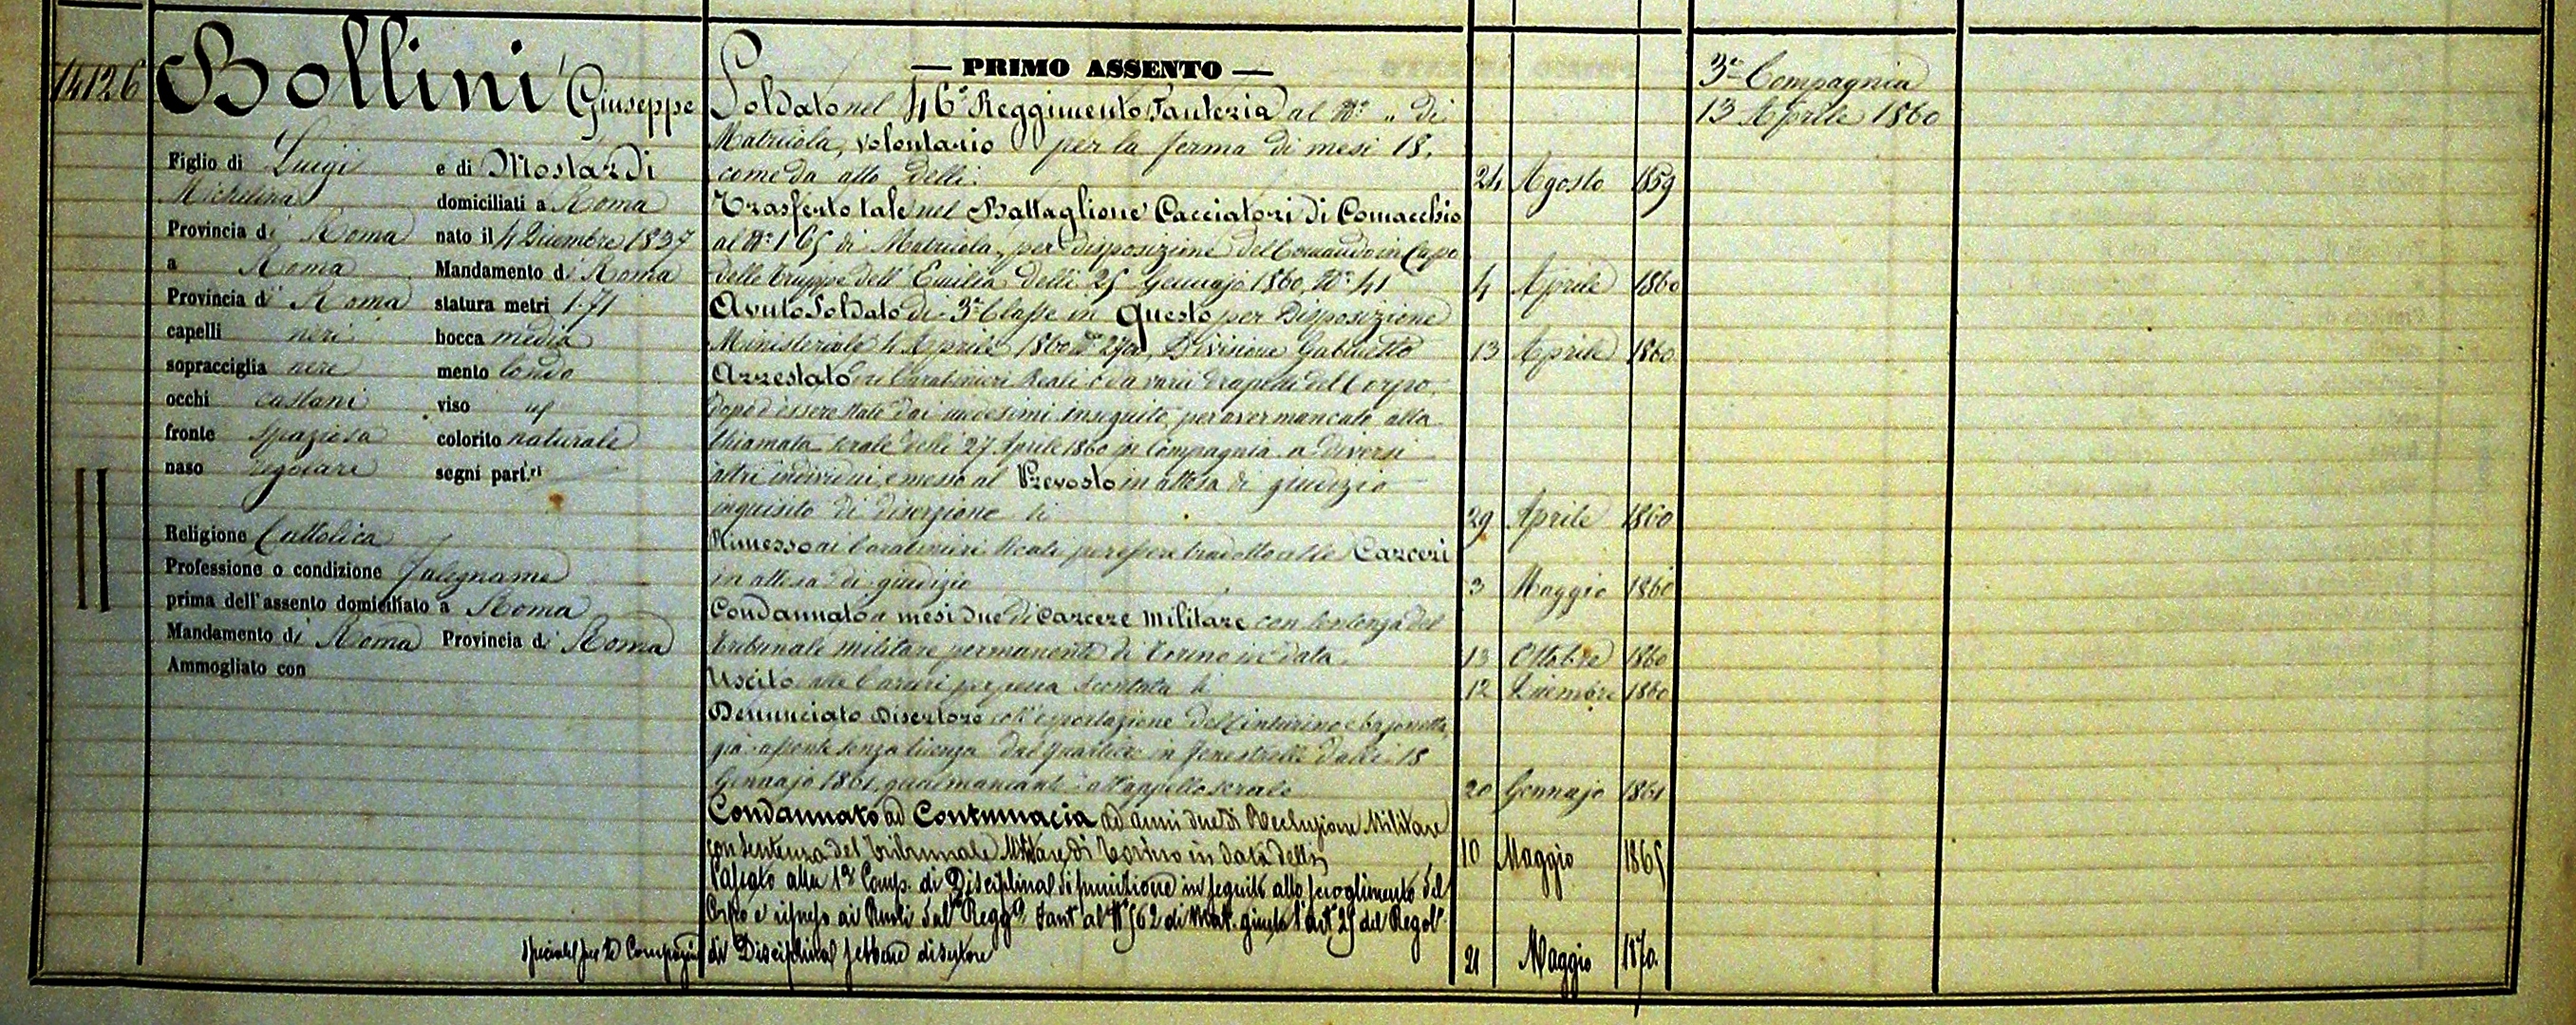 14126
Bollini Giuseppe
Figlio di Luigi e di Mostardi
Michelina domiciliati a Roma
Provincia di Roma nato il 4 Dicembre 1837
a Roma Mandamento di Roma
Provincia di Roma statura metri 1.71
capelli neri bocca media
sopracciglia nere mento tondo
occhi castani viso
fronte spaziosa colorito naturale
naso regolare segni part.ri
Religione Cattolica
Professione o condizione Falegname
prima dell'assento domiciliato a Roma
Mandamento di Roma Provincia di Roma
Ammogliato con
— PRIMO ASSENTO —
Soldato nel 46° Reggimento Fanteria al N° „ di
Matricola, volontario per la ferma di mesi 18,
come da atto delli. 24 Agosto 1859
Trasferto tale nel Battaglione Cacciatori di Comacchio
al N° 165 di Matricola, per disposizione del Comando in Capo
delle Truppe dell'Emilia delli 25 Gennajo 1860, N° 41 4 Aprile 1860
Avuto Soldato di 3a Classe in Questo per Disposizione
Ministeriale 4 Aprile 1860 Divisione Gabinetto 13 Aprile 1860
Arrestato Carabinieri Reali e da varii drapelli del Corpo,
dopo d'essere stato dai medesimi inseguito per aver mancato alla
chiamata serale delli 27 Aprile 1860 in Compagnia a diversi
altri individui, e messo al Prevosto in attesa di giudizio
inquisito di diserzione li 29 Aprile 1860
Rimesso ai Carabinieri Reali per essere tradotto alle Carceri
in attesa di giudizio 3 Maggio 1860
Condannato a mesi due di Carcere Militare con sentenza del
Tribunale militare permanente di Torino in data. 13 Ottobre 1860
Uscito dalle Carceri per pena scontata li 12 Dicembre 1860
Denunciato Disertore coll'esportazione del cinturino e bajonetta,
già assente senza licenza dal quartiere in Fenestrelle dalli 18
Gennajo 1861, quel mancante all'appello serale 20 Gennajo 1861
Condannato ad Contumacia ad anni due di Reclusione Militare
con sentenza del Tribunale Militare di Torino in data delli 10 Maggio 1865
Passato alla 1a Comp. di Disciplina di punizione in seguito allo scioglimento del
Corpo e ripreso ai Ruoli dal Regg.° Fant. al N° 562 di Mat. giusta l'art. 25 del Regol.°
speciale per le Compagnie di Disciplina sebbene disertore 21 Maggio 1870.
3a Compagnia
13 Aprile 1860